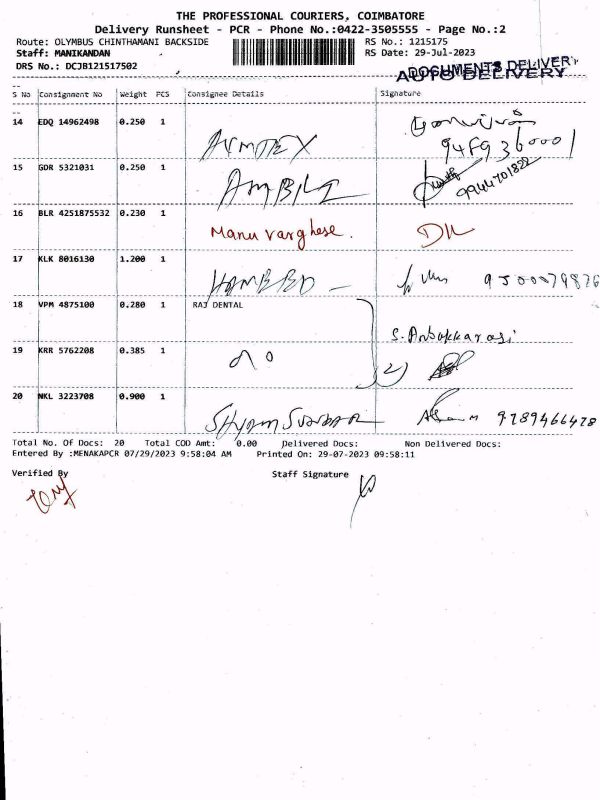 THE PROFESSIONAL COURIERS, COIMBATORE
Delivery Runsheet - PCR - Phone No.:0422-3505555 - Page No.:2
Route: OLYMBUS CHINTHAMANI BACKSIDE RS No.: 1215175
Staff: MANIKANDAN RS Date: 29-Jul-2023
DRS No.: DCJB121517502
DOCUMENTS DELIVERY
AUTO DELIVERY
S No Consignment No Weight PCS Consignee Details Signature
14 EDQ 14962498 0.250 1
15 GDR 5321031 0.250 1 9944701822
16 BLR 4251875532 0.230 1 Manu varghese.
17 KLK 8016130 1.200 1
18 VPM 4875100 0.280 1 RAJ DENTAL S. Anbukkarasi
19 KRR 5762208 0.385 1 2)
20 NKL 3223708 0.900 1 Shyam Sundar 9789466478
Total No. Of Docs: 20 Total COD Amt: 0.00 Delivered Docs: Non Delivered Docs:
Entered By :MENAKAPCR 07/29/2023 9:58:04 AM Printed On: 29-07-2023 09:58:11
Verified By Staff Signature